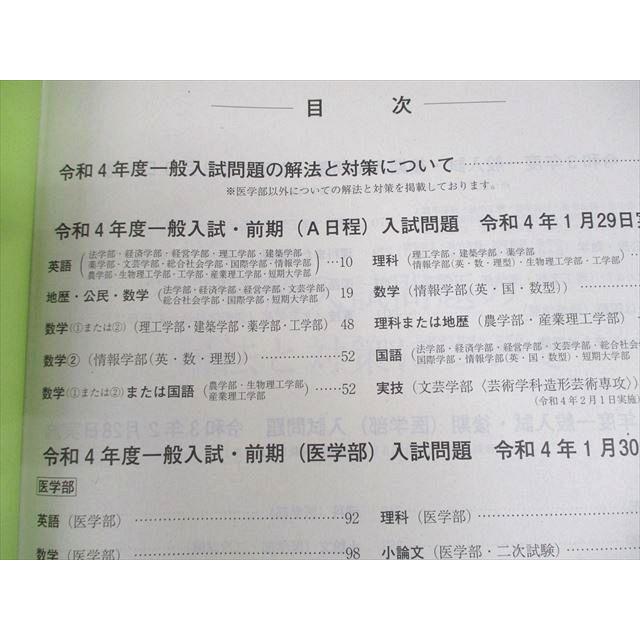 目 次
令和４年度一般入試問題の解法と対策について
※医学部以外についての解法と対策を掲載しております。
令和４年度一般入試・前期（Ａ日程）入試問題 令和４年１月29日実
英語（法学部・経済学部・経営学部・理工学部・建築学部・薬学部・文芸学部・総合社会学部・国際学部・情報学部・農学部・生物理工学部・工学部・産業理工学部・短期大学部）…10
地歴・公民・数学（法学部・経済学部・経営学部・文芸学部・総合社会学部・国際学部・短期大学部）19
数学(①または②)（理工学部・建築学部・薬学部・工学部）48
数学②（情報学部(英・数・理型)）……52
数学(①または②)または国語（農学部・生物理工学部・産業理工学部）……52
理科（理工学部・建築学部・薬学部・情報学部(英・数・理型)・生物理工学部・工学部）
数学（情報学部(英・国・数型)）
理科または地歴（農学部・産業理工学部）
国語（法学部・経済学部・経営学部・文芸学部・総合社会・国際学部・情報学部(英・国・数型)・短期大学部
実技（文芸学部〈芸術学科造形芸術専攻〉）
（令和４年２月１日実施
令和４年度一般入試・前期（医学部）入試問題 令和４年１月30
医学部
英語（医学部）……92
数学（医学部）……98
理科（医学部）……
小論文（医学部・二次試験）……